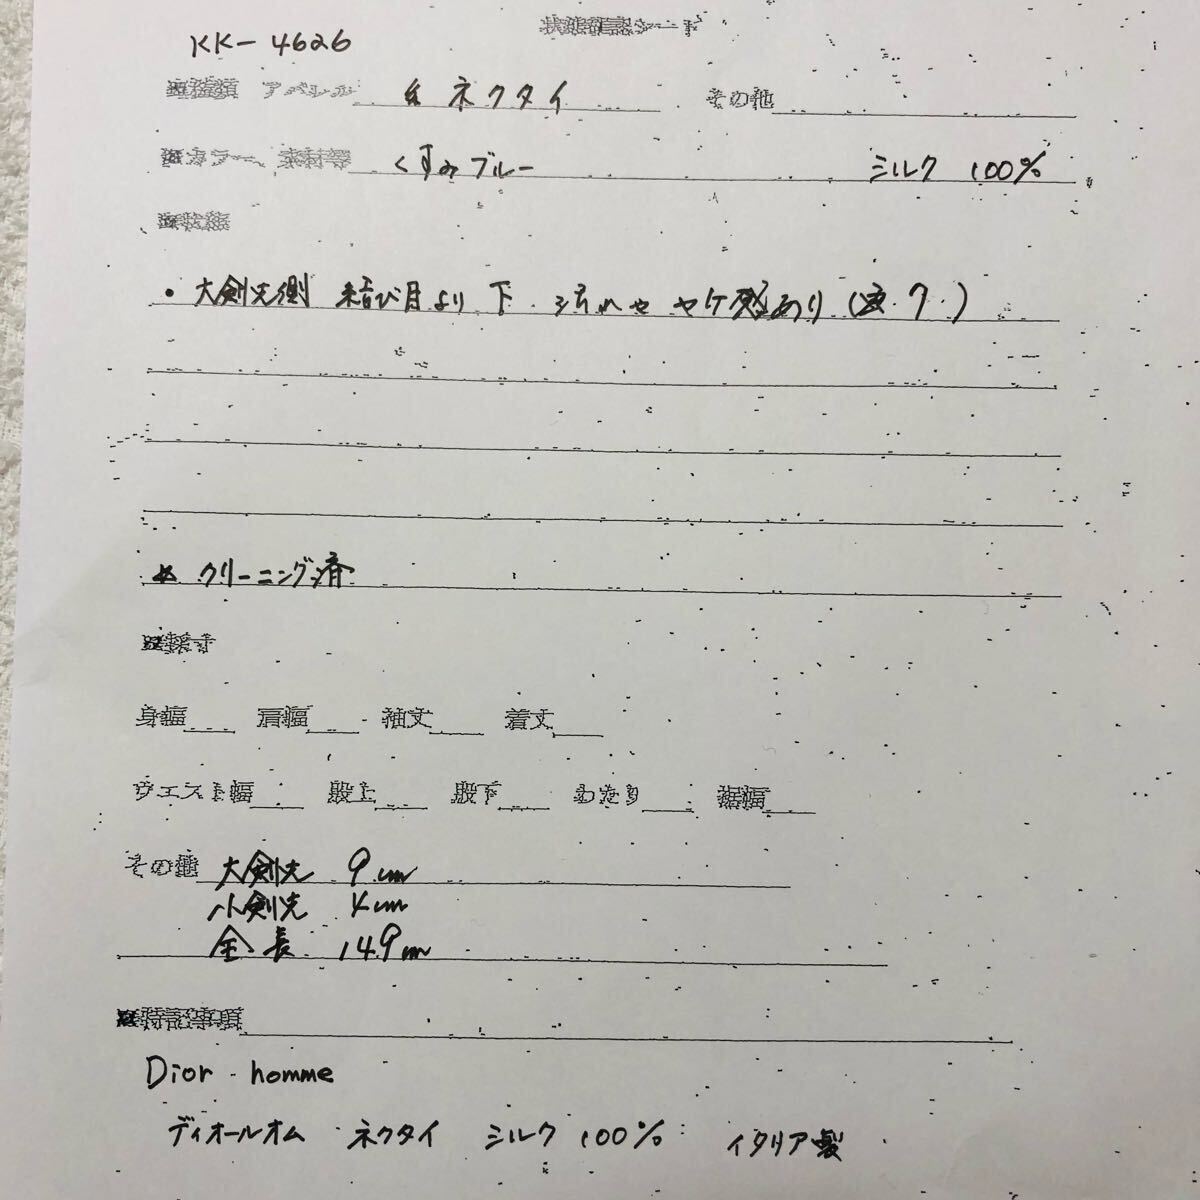 状態確認シート
KK-4626
種類 アパレル ネクタイ その他
カラー、素材等 くすみブルー シルク 100%
状態
・大剣先側 結び目より下 汚れや ヤケ感あり
クリーニング済
採寸
身幅 肩幅 袖丈 着丈
ウエスト幅 股上 股下 わたり 裾幅
その他 大剣先 9cm
小剣先 4cm
全長 149cm
特記事項
Dior homme
ディオールオム ネクタイ シルク 100% イタリア製